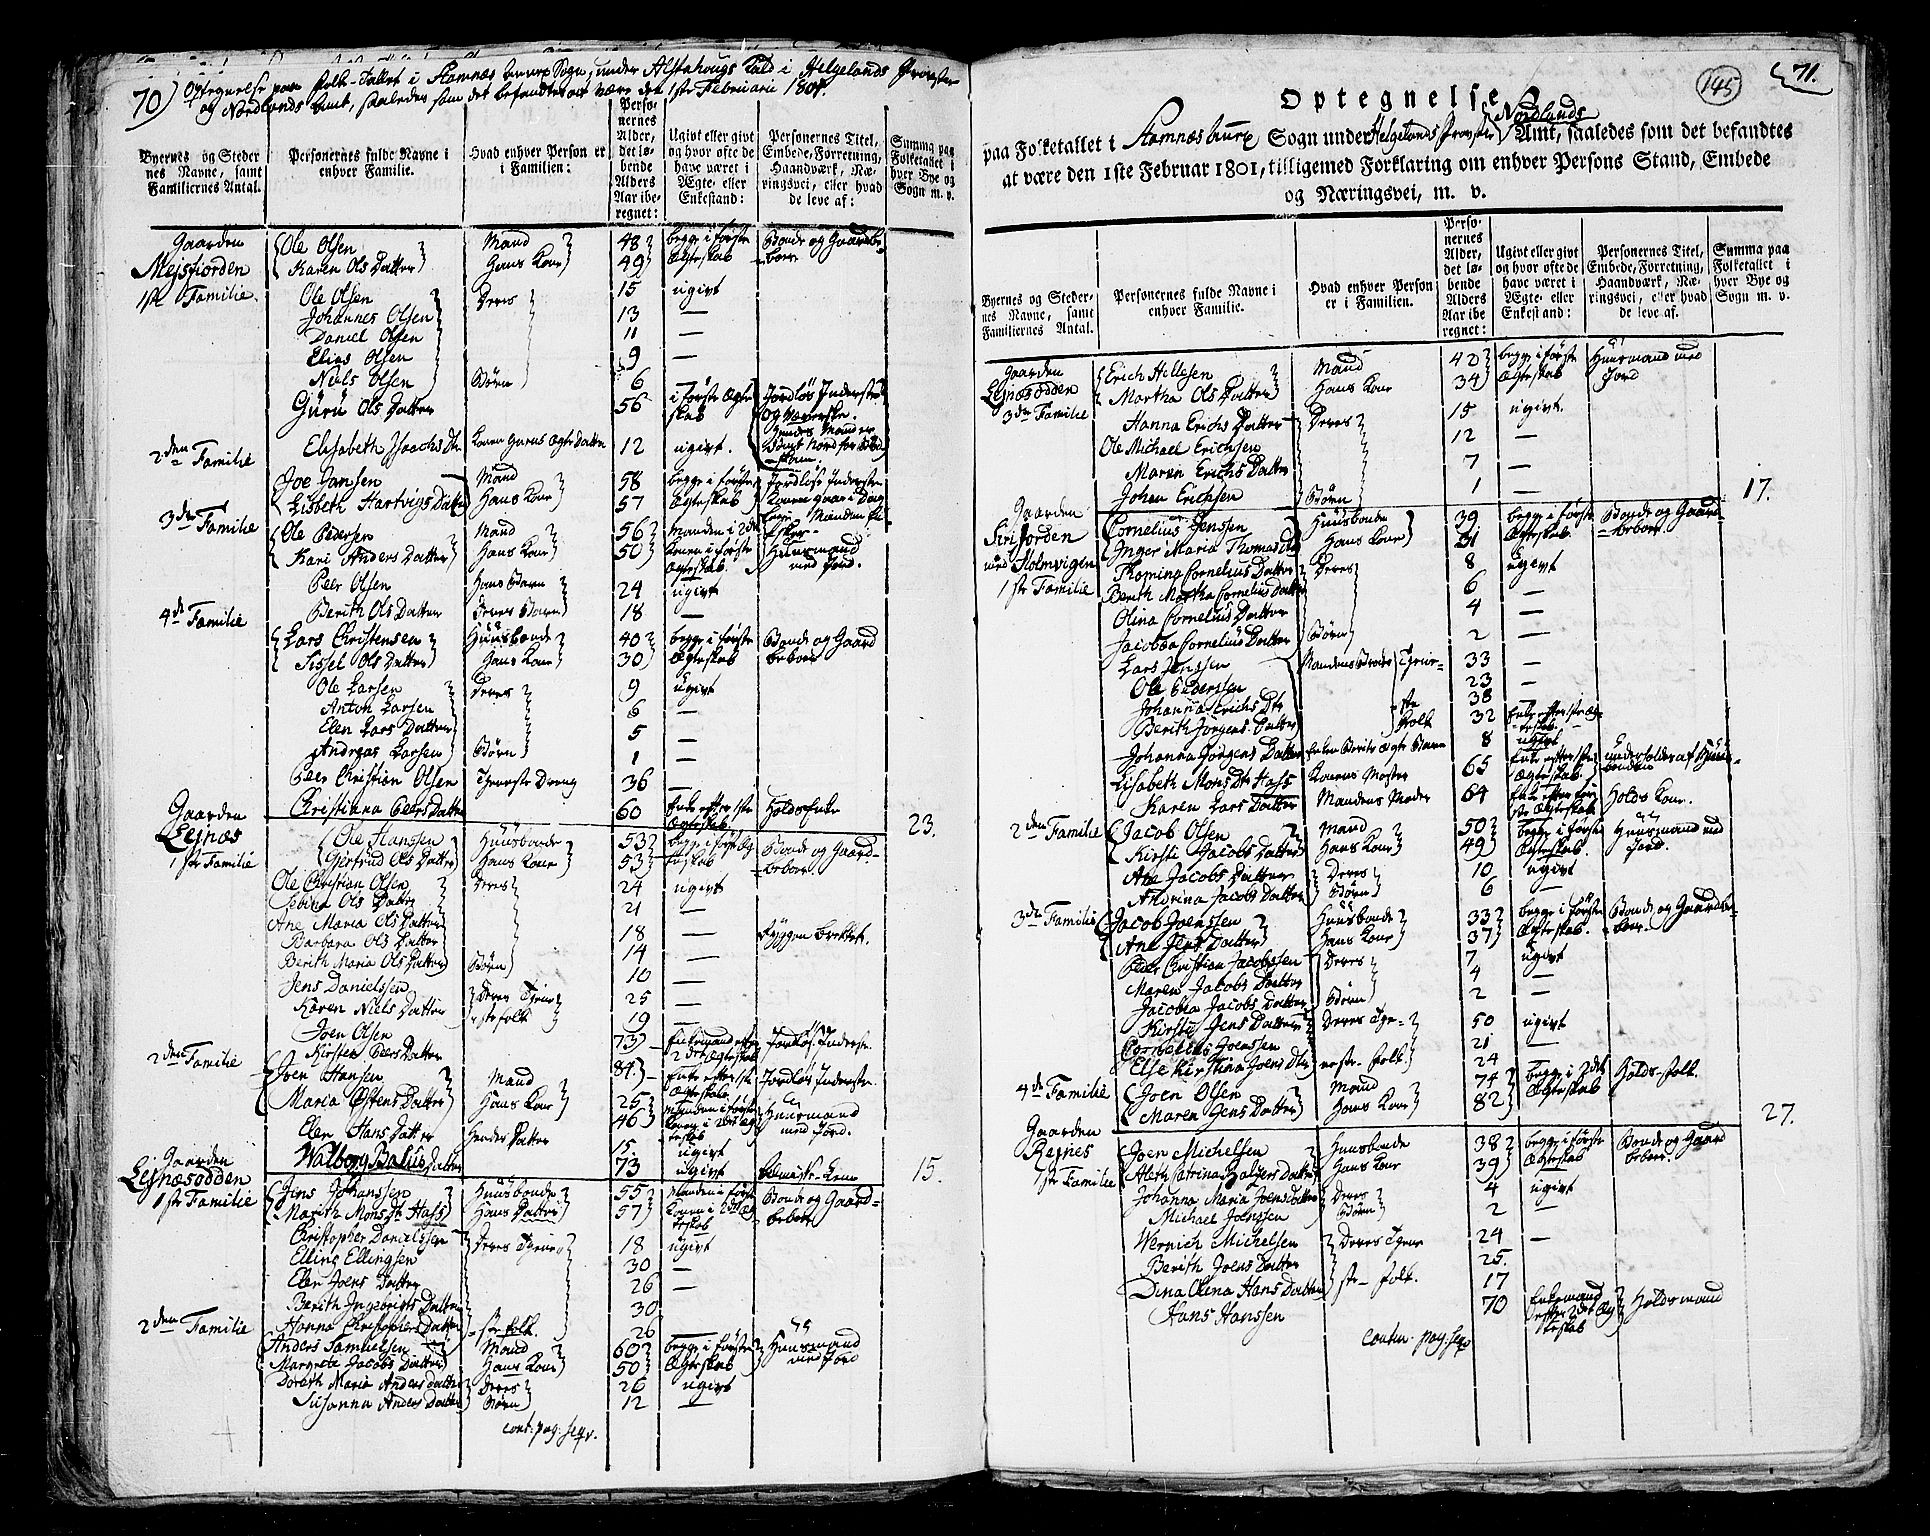 70) Optegnelse paa Folke-Tallet i Stamnæs Sogn, under Alstahougs Kald i Helgelands Provstie
og Nordlands Amt, saaledes som det befandtes at være den 1ste Februarii 1801.
Byernes og Steder nes Navne, samt Familiernes Antal.
Personernes fulde Navne i enhver Familie.
Hvad enhver Person er i Familien:
Persoernes Alder, det løbende Alders Aar iberegnet:
Ugivt eller givt og hvor ofte de have været i Ægte- eller Enkestand:
Personernes Titel, Embede, Forretning, Haandværk, Næringsvei, eller hvad de leve af:
Summa paa Folketallet i hver Bye og Sogn m. v.
Gaarden Ole Olsen Mand 48 begge i første Bonde og Gaardbe-
Mejsfiorden Karen Ols Datter Hans Kone 49 Ægteskab boer
1ste Familie. Ole Olsen Deres 15 ugivt
Johannes Olsen 13 —
Daniel Olsen 11 —
Elias Olsen 9 —
Niels Olsen Børn 6
Guru Ols Datter 56 i første Ægteskab Jordløs Inderste
2den Familie Elisabeth Isachs Dtr Konen Gurus Ægte Datter 12 ugivt.
Joe Jamsen Mand 58 begge i første Jordløs Inderste
Lisbeth Hartvigs Datter Hans Kone 57 Ægteskab
3de Familie Ole Pedersen Mand 56 Manden i 2det
Kari Anders Datter Hans Kone 50 Konen i første Ægteskab Huusmand med Jord.
Peer Olsen Hans Barn 24 ugivt
4de Familie Berith Ols Datter Deres Barn 18 —
Lars Christensen Huusbonde 40 begge i første Bonde og Gaard
Sissel Ols Datter Hans Kone 30 Ægteskab beboer
Ole Larsen Deres 9 ugivt
Anton Larsen 6 —
Elen Lars Datter 5 —
Andreas Larsen Børn 1 —
Peer Christian Olsen Tjeneste Dreng 36
Gaarden Christiana Peers Datter 60 Enke efter 1ste Ægteskab. Holds Enke 23.
Lejnæs Ole Hansen Huusbonde 53 begge i første Æg- Bonde og Gaard-
1ste Familie Gertrud Ols Datter Hans Kone 53 teskab beboer.
Ole Christian Olsen Deres 24 ugivt
Ols Datter 21 —
Ane Maria Ols Datter 18 — Ryggen brekket.
Barbara Ols Datter 14 —
Berith Maria Ols Datter Børn 10 —
Jens Danielssen Deres Tjene- 25 —
Karen Niels Datter stefolk 19 —
Joen Olsen 73 Enkemand efter 2det Ægteskab Jordløs Inderste
2den Familie Kirsten Peers Datter 84 Enke efter 1ste Ægteskab Jordløs Inderste
Joen Hansen Mand 25 Manden i første Huusmand
Maria Ostens Datter Hans Kone 46 Konen i 2det Ægteskab med Jord.
Elen Hans Datter Hendes Datter 15. ugivt
Gaarden Walborg Balzers Datter 73 ugivt Almisse-Lem 15.
Lejnæsodden Jens Johanssen Huusbonde 55 Manden i første Bonde og Gaard-
1ste Familie Marith Mons Dtr Hass Hans Kone 57 Konen i 2det Ægteskab beboer
Christopher Danielssen Deres Tjene- 18 ugivt
Elling Ellingsen 30 —
Elen Joens Datter 26 —
Berith Ingebrigts Datter 30
2den Familie Hanna Christophers Datter ste folk. 26
Anders Samuelsen Mand 60 begge i første Huusmand
Margrete Jacobs Datter Hans Kone 50 Ægteskab med Jord
Dorith Maria Anders Datter Deres 26 ugivt
Susanna Anders Datter Børn 12 —
cont: pag: seqv.
145
71.
Optegnelse
paa Folketallet i Stamnæs Sogn under Helgelands Provstie Nordlands Amt, saaledes som det befandtes
at være den 1ste Februar 1801, tilligemed Forklaring om enhver Persons Stand, Embede
og Næringsvei, m. v.
Byernes og Steder-nes Navne, samt Familiernes Antal.
Personernes fulde Navne i enhver Familie.
Hvad enhver Person er i Familien.
Persoernes Alder, det løbende Alders Aar iberegnet:
Ugivt eller givt og hvor ofte de have været i Ægte- eller Enkestand:
Personernes Titel, Embede, Forretning, Haandværk, Næringsvei, eller hvad de leve af.
Summa paa Folketallet i hver Bye og Sogn m. v.
Gaarden Erich Hillesen Mand 42 begge i første Huusmand med
Lejnæsodden Martha Ols Datter Hans Kone 34 Ægteskab Jord
3de Familie Hanna Erichs Datter Deres 15 ugivt.
Ole Michael Erichsen 12 —
Maren Erichs Datter 7 —
Johan Erichsen Børn 1 — 17.
Gaarden Cornelius Jenssen Huusbonde 39 begge i første Bonde og Gaard-
Inger Maria Thomas Dtr Hans Kone 31 Ægteskab. beboer.
med Holmvigen Cornelius Datter Deres 8 ugivt
1ste Familie Berith Martha Cornelius Datter 6 —
Olina Cornelius Datter 4 —
Jacobea Cornelius Datter Børn 2 —
Lars Jenssen Mandens Broder Tjene- 33 —
Ole Pederssen 23 —
Johanna Erichs Dtr ste 38
Berith Jørgens Datter folk 32 Enke efter 1ste Ægteskab
Johanna Jørgens Datter Enken Berits Ægte Barn 8 ugivt
Lisabeth Mons Dtr Hass Konens Moster 65 Enke efter 1ste Ægteskab. underholdes af Huusbonden
Karen Lars Datter Mandens Moder 64 Holds Kone.
2den Familie Jacob Olsen Mand 50 begge i første Huusmand med
Kirsti Jacobs Datter Hans Kone 49 Ægteskab. Jord.
Ane Jacobs Datter Deres 10 ugivt
Andrina Jacobs Datter Børn 6 —
3de Familie Jacob Joenssen Huusbonde 33 begge i første Bonde og Gaardbe-
Ane Jens Datter Hans Kone 37 Ægteskab. boer.
Peder Christian Jacobssen Deres 7 ugivt
Maren Jacobs Datter 4 —
Jacobea Jacobs Datter Børn 2 —
Kirsti Jens Datter Deres Tje- 50 ugivt
Cornelius Joenssen 21 —
Else Kirstina Joens Dtr neste-folk 24
4de Familie Joen Olsen Mand 74 begge i 2det Holds-folk.
Maren Jens Datter Hans Kone 82 Ægteskab
Gaarden 27.
Rejnes Joen Michelsen Huusbonde 38 begge i første Bonde og Gaard
1ste Familie Aleth Catrina Balzers Datter Hans Kone 39 Ægteskab. beboer.
Johanna Maria Joens Datter Deres 4 ugivt
Michael Joenssen Børn 2 —
Wernich Michelsen Deres Tjene 24 —
Berith Joens Datter 25.
Dina Olina Hans Datter ste-folk. 17
Hans Hanssen 70 Enkemand efter 2det Ægteskab Holdsmand
contin: pag: seqv